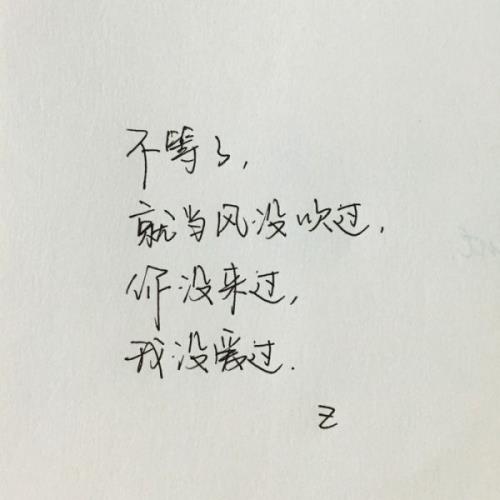 不等了，
就当风没吹过，
你没来过，
我没爱过.
Z